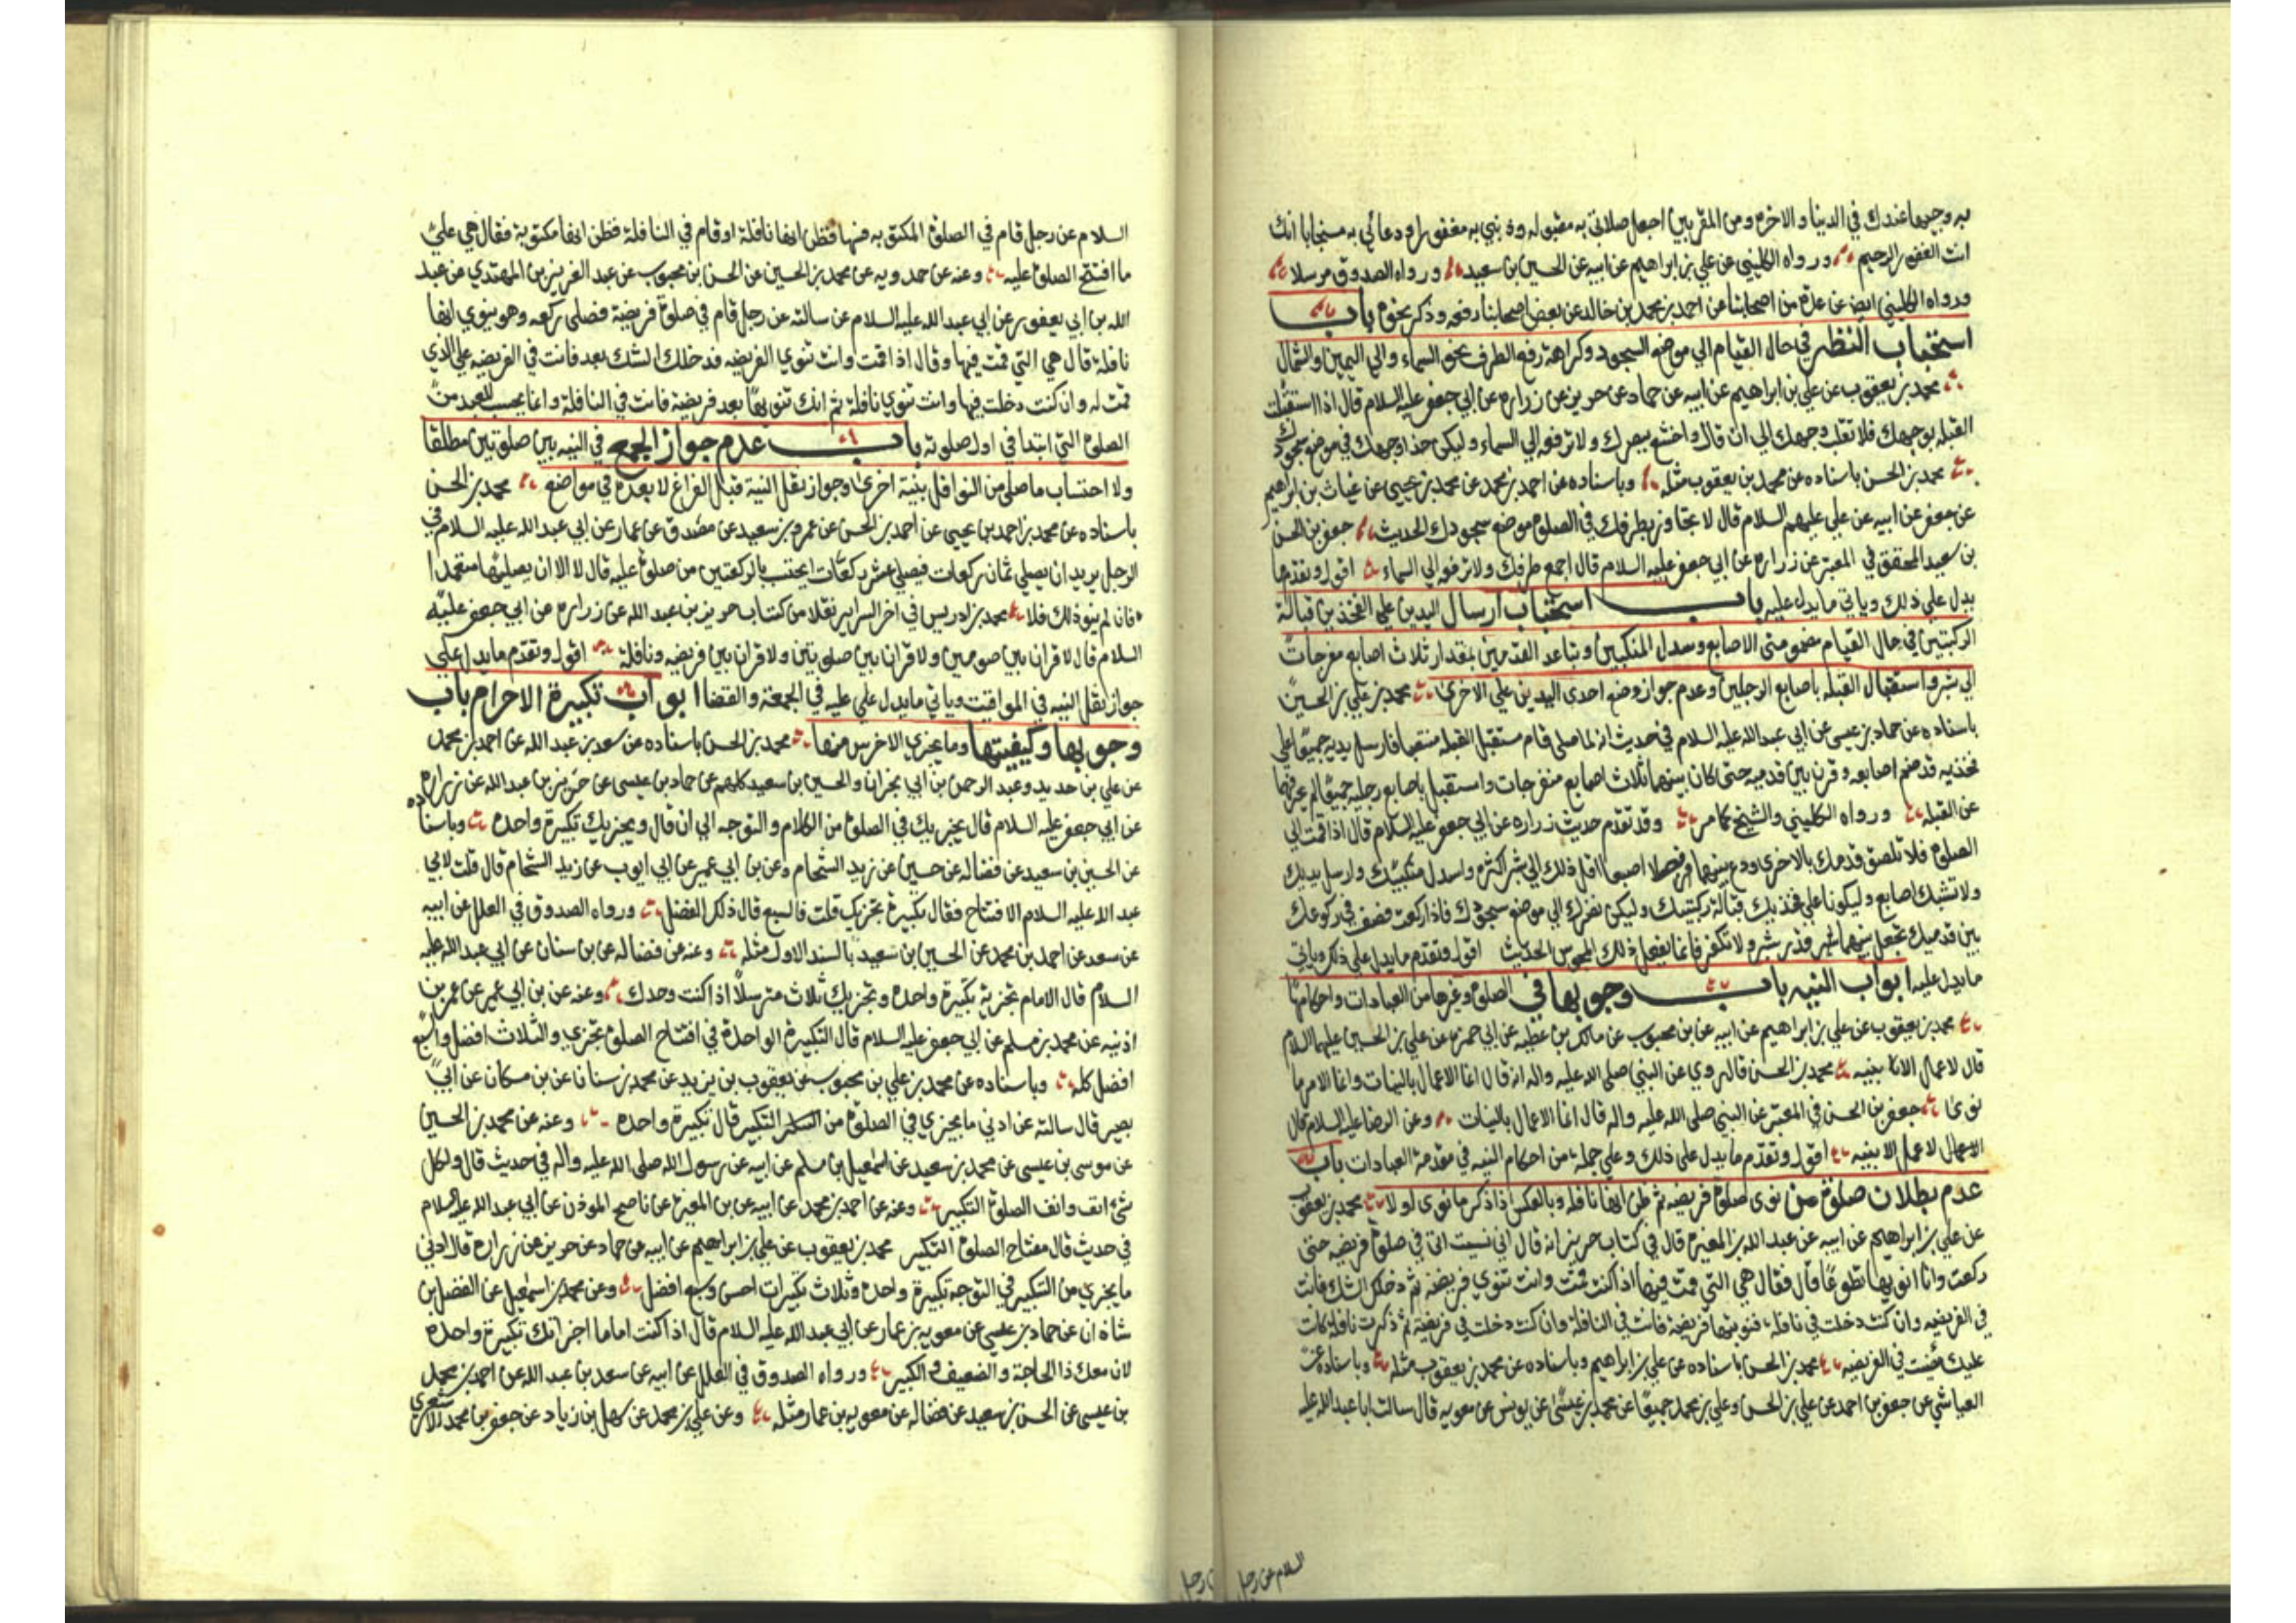 به وجيها عندك في الدنيا والاخرة ومن المقربين اجعل صلاتي به مقبوله وذنبي به مغفورا ودعائي به مستجابا انك
انت الغفور الرحيم ورواه الكليني عن علي بن ابراهيم عن ابيه عن الحسين بن سعيد ورواه الصدوق مرسلا
ورواه الكليني ايضا عن عدة من اصحابنا عن احمد بن محمد بن خالد عن بعض اصحابنا رفعه وذكر نحوه باب
استحباب النظر في حال القيام الي موضع السجود وكراهة رفع الطرف نحو السماء والي اليمين والشمال
محمد بن يعقوب عن علي بن ابراهيم عن ابيه عن حماد عن حريز عن زراره عن ابي جعفر عليه السلام قال اذا استقبلت
القبله بوجهك فلا تقلب وجهك الي ان قال واخشع ببصرك ولا ترفعه الي السماء وليكن حذا وجهك في موضع سجودك
محمد بن الحسن باسناده عن محمد بن يعقوب مثله وباسناده عن احمد بن محمد عن محمد بن يحيى عن غياث بن ابراهيم
عن جعفر عن ابيه عن علي عليهم السلام قال لا تجاوز بطرفك في الصلوة موضع سجودك الحديث جعفر بن الحسن
بن سعيد المحقق في المعتبر عن زراره عن ابي جعفر عليه السلام قال اجمع طرفك ولا ترفعه الي السماء اقول وتقدم ما
يدل علي ذلك وياتي ما يدل عليه باب استحباب ارسال اليدين علي الفخذين قبالة
الركبتين في حال القيام مضمومتى الاصابع وسدل المنكبين وتباعد القدمين بمقدار ثلاث اصابع مفرجات
الي شبر واستقبال القبله باصابع الرجلين وعدم جواز وضع احدى اليدين علي الاخرى محمد بن علي بن الحسين
باسناده عن حماد بن عيسى عن ابي عبد الله عليه السلام في حديث انه لما صلى قام مستقبل القبله منتصبا فارسل يديه جميعا علي
فخذيه قد ضم اصابعه وقرن بين قدميه حتى كان بينهما ثلاث اصابع منفرجات واستقبل باصابع رجليه جميعا لم يحرفهما
عن القبله ورواه الكليني والشيخ كما مر وقد تقدم حديث زراره عن ابي جعفر عليه السلام قال اذا قمت الي
الصلوة فلا تلصق قدمك بالاخرى ودع بينهما فصلا اصبعا اقل ذلك الي شبر اكثره واسدل منكبيك وارسل يديك
ولا تشبك اصابع وليكونا علي فخذيك قبالة ركبتيك وليكن نظرك الي موضع سجودك فاذا ركعت فصف في ركوعك
بين قدميك تجعل بينهما قدر شبر ولا تكفر فانما يفعل ذلك المجوس الحديث اقول وتقدم ما يدل علي ذلك وياتي
ما يدل عليه ابواب النيه باب وجوبها في الصلوة وغيرها من العبادات واحكامها
محمد بن يعقوب عن علي بن ابراهيم عن ابيه عن بن محبوب عن مالك بن عطيه عن ابي حمزه عن علي بن الحسين عليهما السلام
قال لا عمل الا بنيه محمد بن الحسن قال روي عن النبي صلى الله عليه واله انه قال انما الاعمال بالنيات وانما لامرء ما
نوى جعفر بن الحسن في المعتبر عن النبي صلى الله عليه واله قال انما الاعمال بالنيات وعن الرضا عليه السلام قال
لا عمل الا بنيه اقول وتقدم ما يدل علي ذلك وعلي جملة من احكام النيه في مقدمة العبادات باب
عدم بطلان صلوة من نوى صلوة فريضه ثم ظن انها نافله وبالعكس اذا ذكر ما نوى اولا محمد بن يعقوب
عن علي بن ابراهيم عن ابيه عن عبد الله بن المغيره قال في كتاب حريز انه قال اني نسيت اني في صلوة فريضه حتى
ركعت وانا انويها تطوعا قال فقال هي التي قمت فيها اذا كنت قمت وانت تنوي فريضه ثم دخلك الشك فانت
في الفريضه وان كنت دخلت في نافله فنويتها فريضة فانت في النافلة وان كنت دخلت في فريضة ثم ذكرت نافلة كانت
عليك فمضت في الفريضه محمد بن الحسن باسناده عن علي بن ابراهيم وباسناده عن محمد بن يعقوب مثله وباسناده عن
العياشي عن جعفر بن احمد عن علي بن الحسن وعلي بن محمد جميعا عن محمد بن عيسى عن يونس عن معويه قال سالت ابا عبد الله عليه
السلام عن رجل
السلام عن رجل قام في الصلوة المكتوبه فنها فظن انها نافلة او قام في النافلة فظن انها مكتوبة فقال هي علي
ما افتتح الصلوة عليه وعنه عن حمدويه عن محمد بن الحسين عن الحسن بن محبوب عن عبد العزيز بن المهتدي عن عبد
الله بن ابي يعفور عن ابي عبد الله عليه السلام عن سالته عن رجل قام في صلوة فريضة فصلى ركعه وهو ينوي انها
نافلة قال هي التي قمت فيها وقال اذا قمت وانت تنوي الفريضه فدخلك الشك بعد فانت في الفريضه علي الذي
قمت له وان كنت دخلت فيها وانت تنوي نافلة ثم انك تنويها بعد فريضة فانت في النافلة وانما يحسب للعبد من
الصلوة التي ابتدا في اول صلوته باب عدم جواز الجمع في النيه بين صلوتين مطلقا
ولا احتساب ما صلى من النوافل بنية اخرى وجواز نقل النية قبل الفراغ لا بعده في مواضعه محمد بن الحسن
باسناده عن محمد بن احمد بن يحيى عن احمد بن الحسن عن عمرو بن سعيد عن مصدق عن عمار عن ابي عبد الله عليه السلام في
الرجل يريد ان يصلي ثمان ركعات فيصلي عشر ركعات ايحتسب بالركعتين من صلوة عليه قال لا الا ان يصليها متعمدا
فان لم ينو ذلك فلا محمد بن ادريس في اخر السراير نقلا من كتاب حريز بن عبد الله عن زراره عن ابي جعفر عليه
السلام قال لا قران بين صومين ولا قران بين صلوتين ولا قران بين فريضه ونافلة اقول وتقدم ما يدل علي
جواز نقل النيه في المواقيت وياتي ما يدل علي عليه في الجمعة والقضا ابواب تكبيرة الاحرام باب
وجوبها وكيفيتها وما يجزي الاخرس منها محمد بن الحسن باسناده عن سعد بن عبد الله عن احمد بن محمد
عن علي بن حديد وعبد الرحمن بن ابي نجران والحسين بن سعيد كلهم عن حماد بن عيسى عن حريز بن عبد الله عن زراره
عن ابي جعفر عليه السلام قال يجزيك في الصلوة من الكلام والتوجه الي ان قال ويجزيك تكبيرة واحده وباسناده
عن الحسين بن سعيد عن فضاله عن حسين عن زيد الشحام وعن بن ابي عمير عن ابي ايوب عن زيد الشحام قال قلت لابي
عبد الله عليه السلام الافتتاح فقال تكبيرة تجزيك قلت فالسبع قال ذلك الفضل ورواه الصدوق في العلل عن ابيه
عن سعد عن احمد بن محمد عن الحسين بن سعيد بالسند الاول مثله وعنه عن فضاله عن بن سنان عن ابي عبد الله عليه
السلام قال الامام تجزيه تكبيرة واحده وتجزيك ثلاث مترسلا اذا كنت وحدك وعنه عن بن ابي عمير عن عمر بن
اذنيه عن محمد بن مسلم عن ابي جعفر عليه السلام قال التكبيرة الواحدة في افتتاح الصلوة تجزي والثلاث افضل والسبع
افضل كله وباسناده عن محمد بن علي بن محبوب عن يعقوب بن يزيد عن محمد بن سنان عن بن مسكان عن ابي
بصير قال سالته عن ادني ما يجزي في الصلوة من التكبير قال تكبيرة واحده وعنه عن محمد بن الحسين
عن موسى بن عيسى عن محمد بن سعيد عن اسمعيل بن مسلم عن ابيه عن رسول الله صلى الله عليه واله في حديث قال ولكل
شئ انف وانف الصلوة التكبير وعنه عن احمد بن محمد عن ابيه عن بن المغيرة عن ناصح الموذن عن ابي عبد الله عليه السلام
في حديث قال مفتاح الصلوة التكبير محمد بن يعقوب عن علي بن ابراهيم عن ابيه عن حماد عن حريز عن زراره قال ادني
ما يجزي من التكبير في التوجه تكبيرة واحده وثلاث تكبيرات احسن وسبع افضل وعن محمد بن اسمعيل عن الفضل بن
شاذان عن حماد بن عيسى عن معويه بن عمار عن ابي عبد الله عليه السلام قال اذا كنت اماما اجزاتك تكبيرة واحده
لان معك ذا الحاجة والضعيف والكبير ورواه الصدوق في العلل عن ابيه عن سعد بن عبد الله عن احمد بن محمد
بن عيسى عن الحسن بن سعيد عن فضاله عن معويه بن عمار مثله وعن علي بن محمد عن سهل بن زياد عن جعفر بن محمد الاشعري